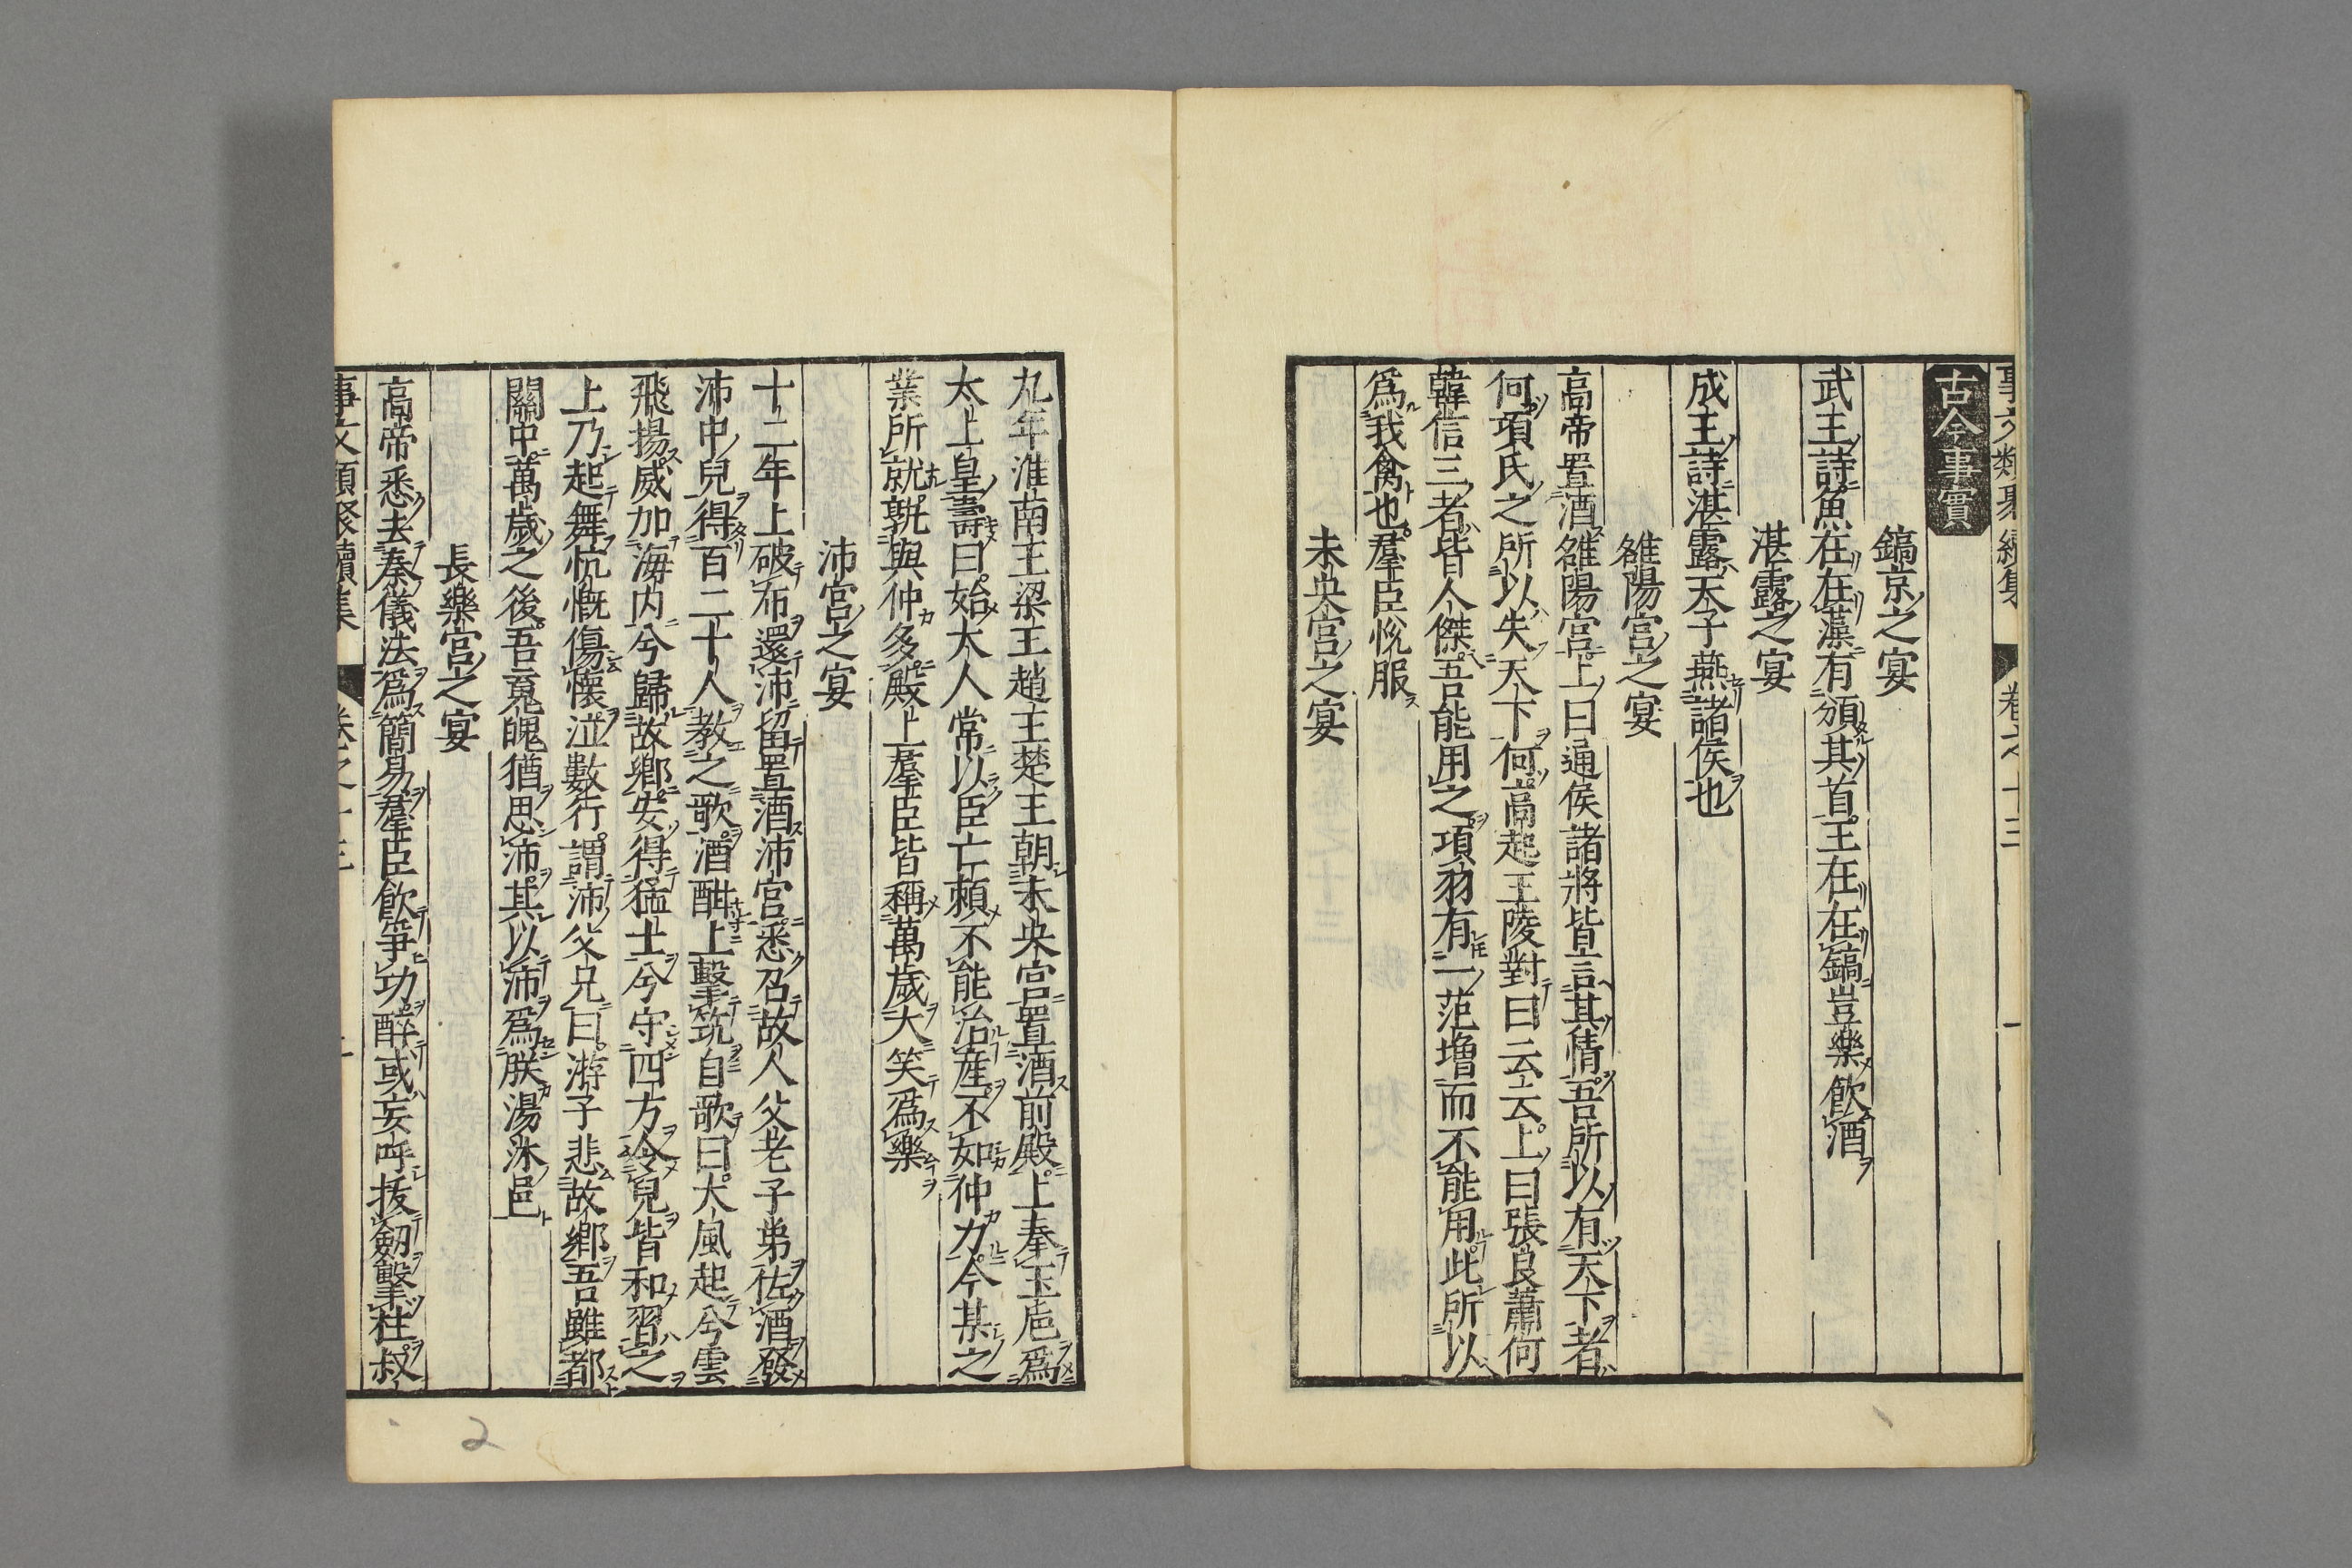 事文類聚續集 卷之十三 一
古今事實
鎬京之宴
武王詩魚在在藻有頒其首王在在鎬豈樂飲酒
湛露之宴
成王詩湛露天子燕諸侯也
雒陽宮之宴
高帝置酒雒陽宮上曰通侯諸將皆言其情吾所以有天下者
何項氏之所以失天下何高起王陵對曰云云上曰張良蕭何
韓信三者皆人傑吾能用之項羽有一范增而不能用此所以
爲我禽也羣臣悅服
未央宮之宴
九年淮南王梁王趙王楚王朝未央宮置酒前殿上奉玉巵爲
太上皇壽曰始太人常以臣亡賴不能治産不如仲力今某之
業所就孰與仲多殿上羣臣皆稱萬歲大笑爲樂
沛宮之宴
十二年上破布還沛留置酒沛宮悉召故人父老子弟佐酒發
沛中兒得百二十人教之歌酒酣上擊筑自歌曰大風起兮雲
飛揚威加海内兮歸故鄉安得猛士兮守四方令兒皆和習之
上乃起舞忼慨傷懷泣數行謂沛父兄曰游子悲故鄉吾雖都
關中萬歲之後吾竟魄猶思沛其以沛爲朕湯沐邑
長樂宮之宴
高帝悉去秦儀法爲簡易羣臣飲爭功醉或妄呼拔劔擊柱叔
事文類聚續集 卷之十三 二
2